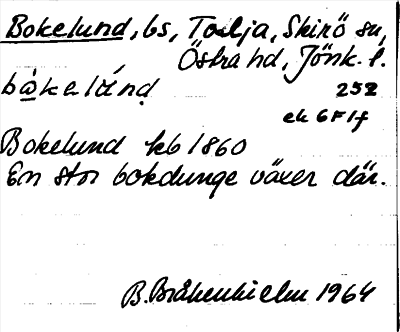 Bokelund, bs, Torlja, Skirö sn,
Östra hd, Jönk. l.
bò̱kelúnḍ 252
ek 6F1f
Bokelund kb 1860
En stor bokdunge växer där.
B. Bråkenhielm 1964